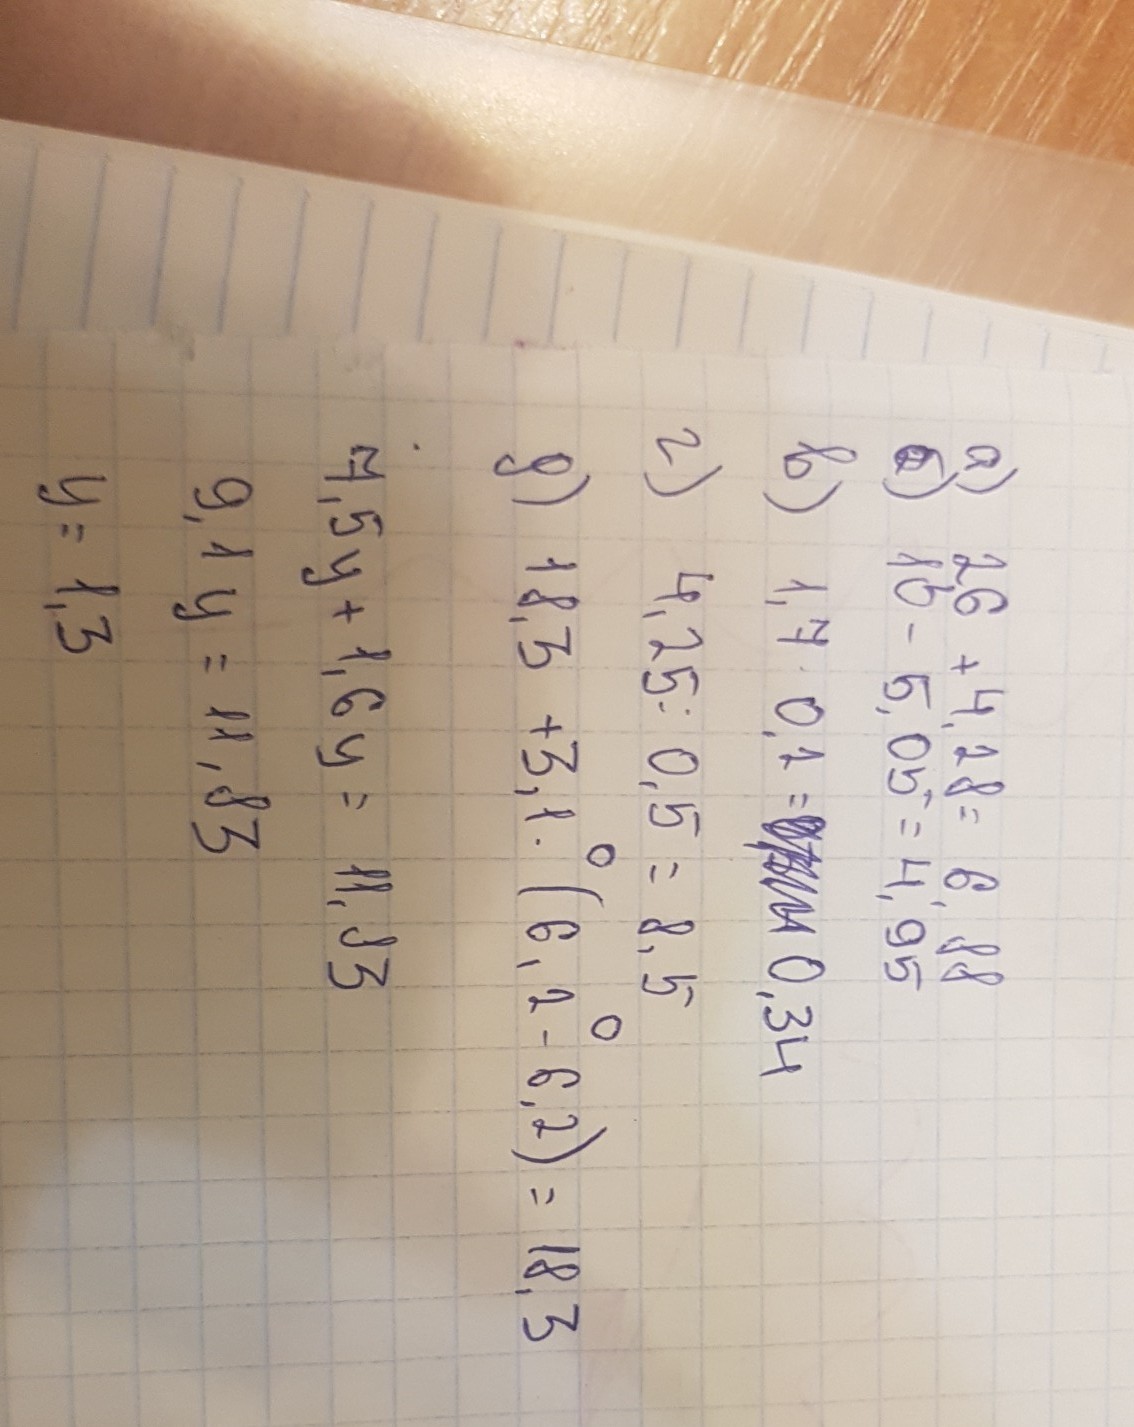 а) 26 + 4,28 = 6,88
б) 10 - 5,05 = 4,95
в) 1,7 · 0,2 = 0,34
г) 4,25 : 0,5 = 8,5
д) 18,3 + 3,1 · (6,2 - 6,2) = 18,3
7,5y + 1,6y = 11,83
9,1y = 11,83
y = 1,3